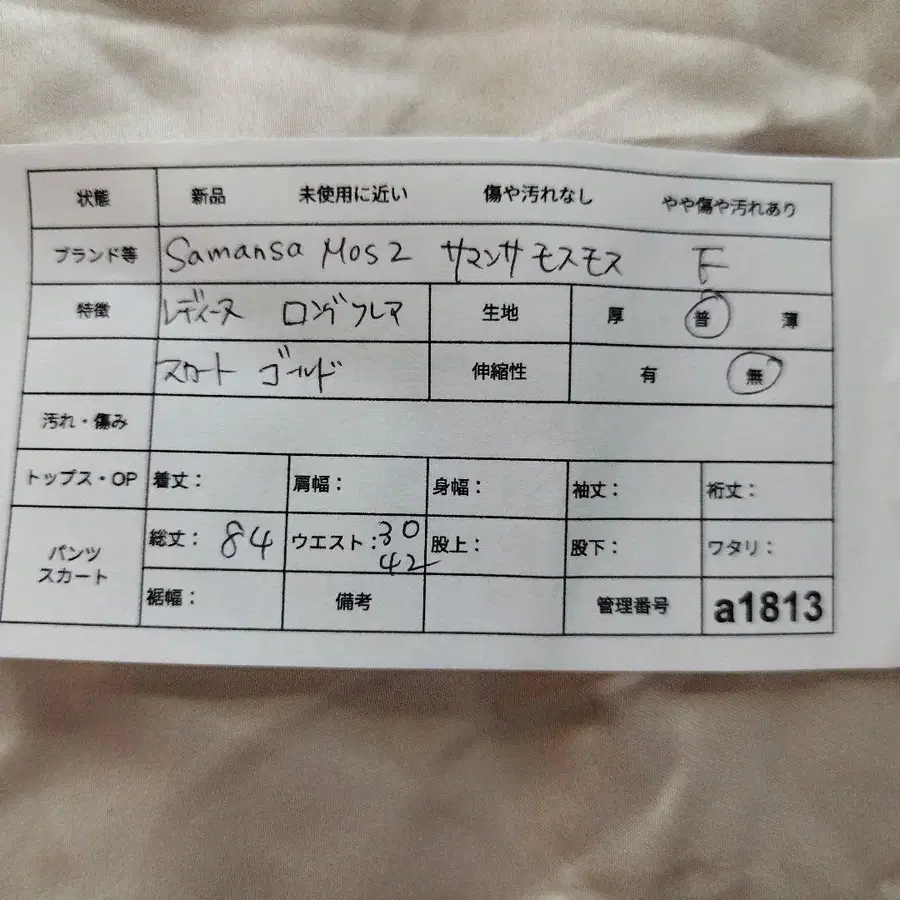 状態 新品 未使用に近い 傷や汚れなし やや傷や汚れあり
ブランド等 Samansa Mos2 サマンサ モスモス F
特徴 レディース ロングフレア 生地 厚 普 薄
スカート ゴールド 伸縮性 有 無
汚れ・傷み
トップス・OP 着丈: 肩幅: 身幅: 袖丈: 裄丈:
パンツ スカート 総丈: 84 ウエスト: 30 42 股上: 股下: ワタリ:
裾幅: 備考 管理番号 a1813